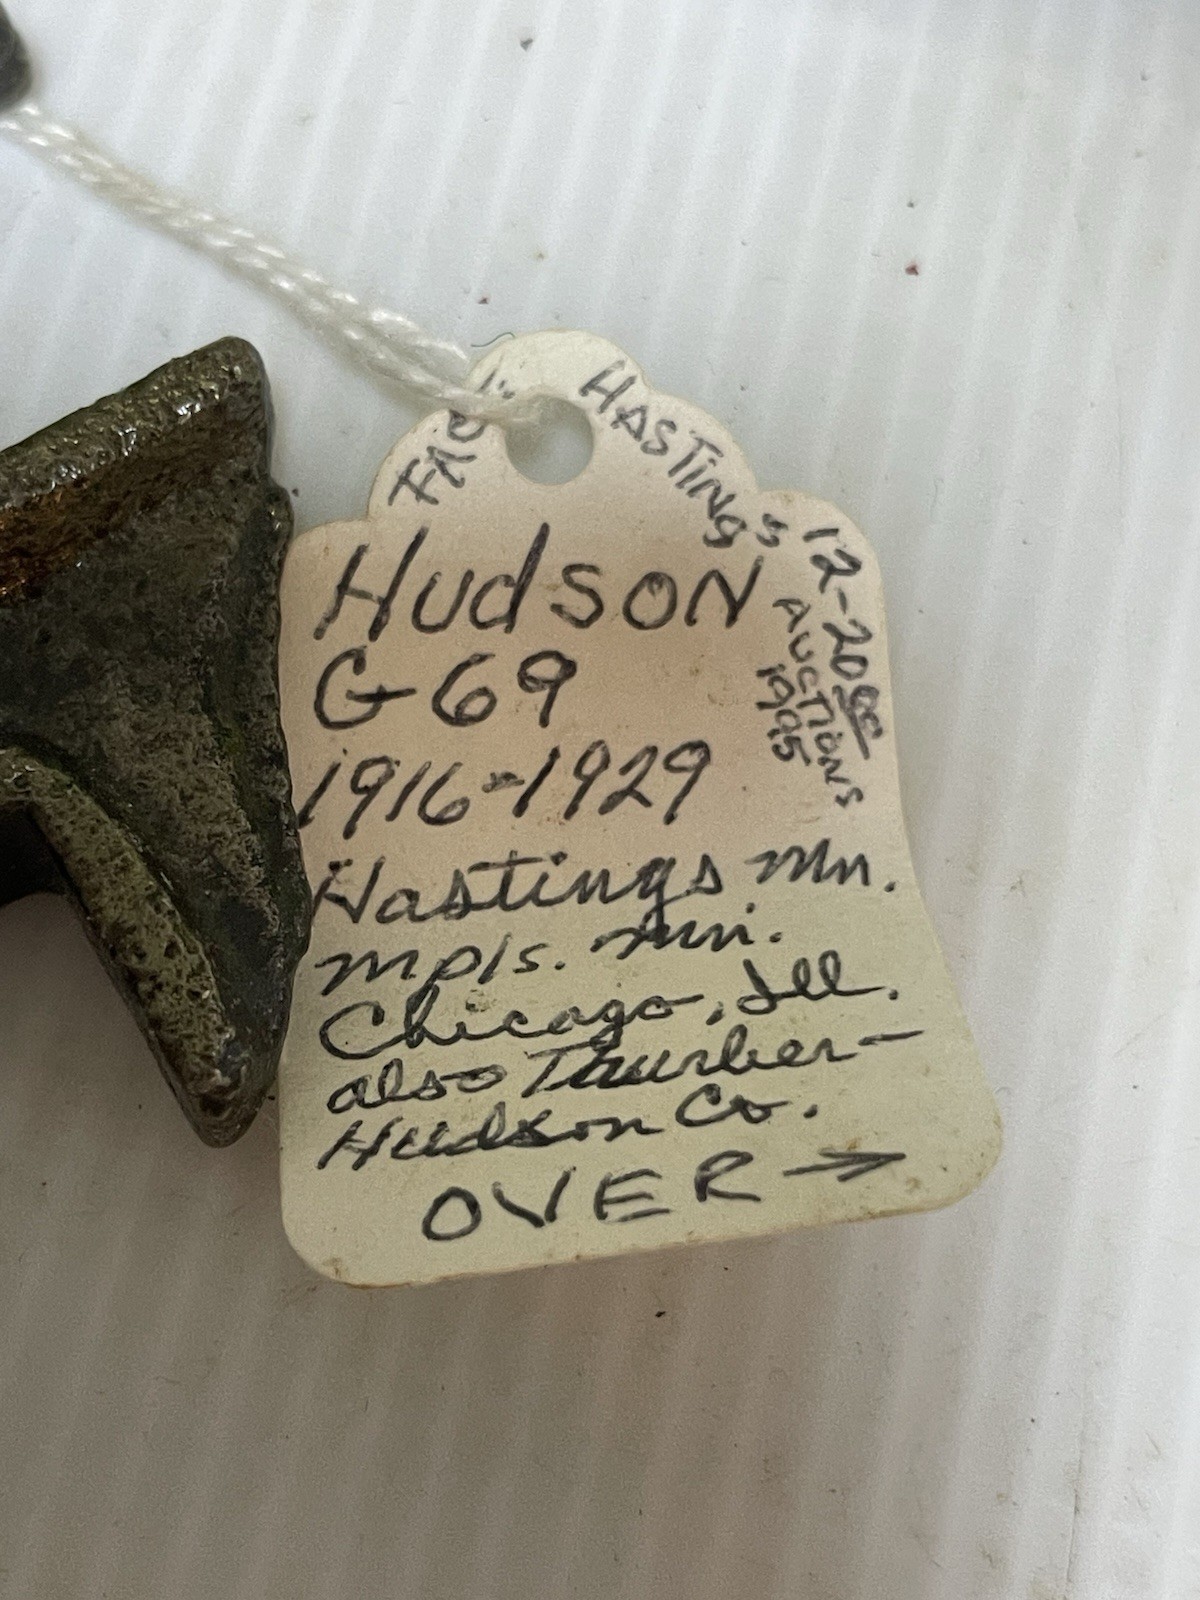 HASTING'S
12-20 00
AUCTIONS
1995
HudsON
G-69
1916-1929
Hastings Mn.
Mpls. Mn.
Chicago, Ill.
also Thurber-
Hudson Co.
OVER →